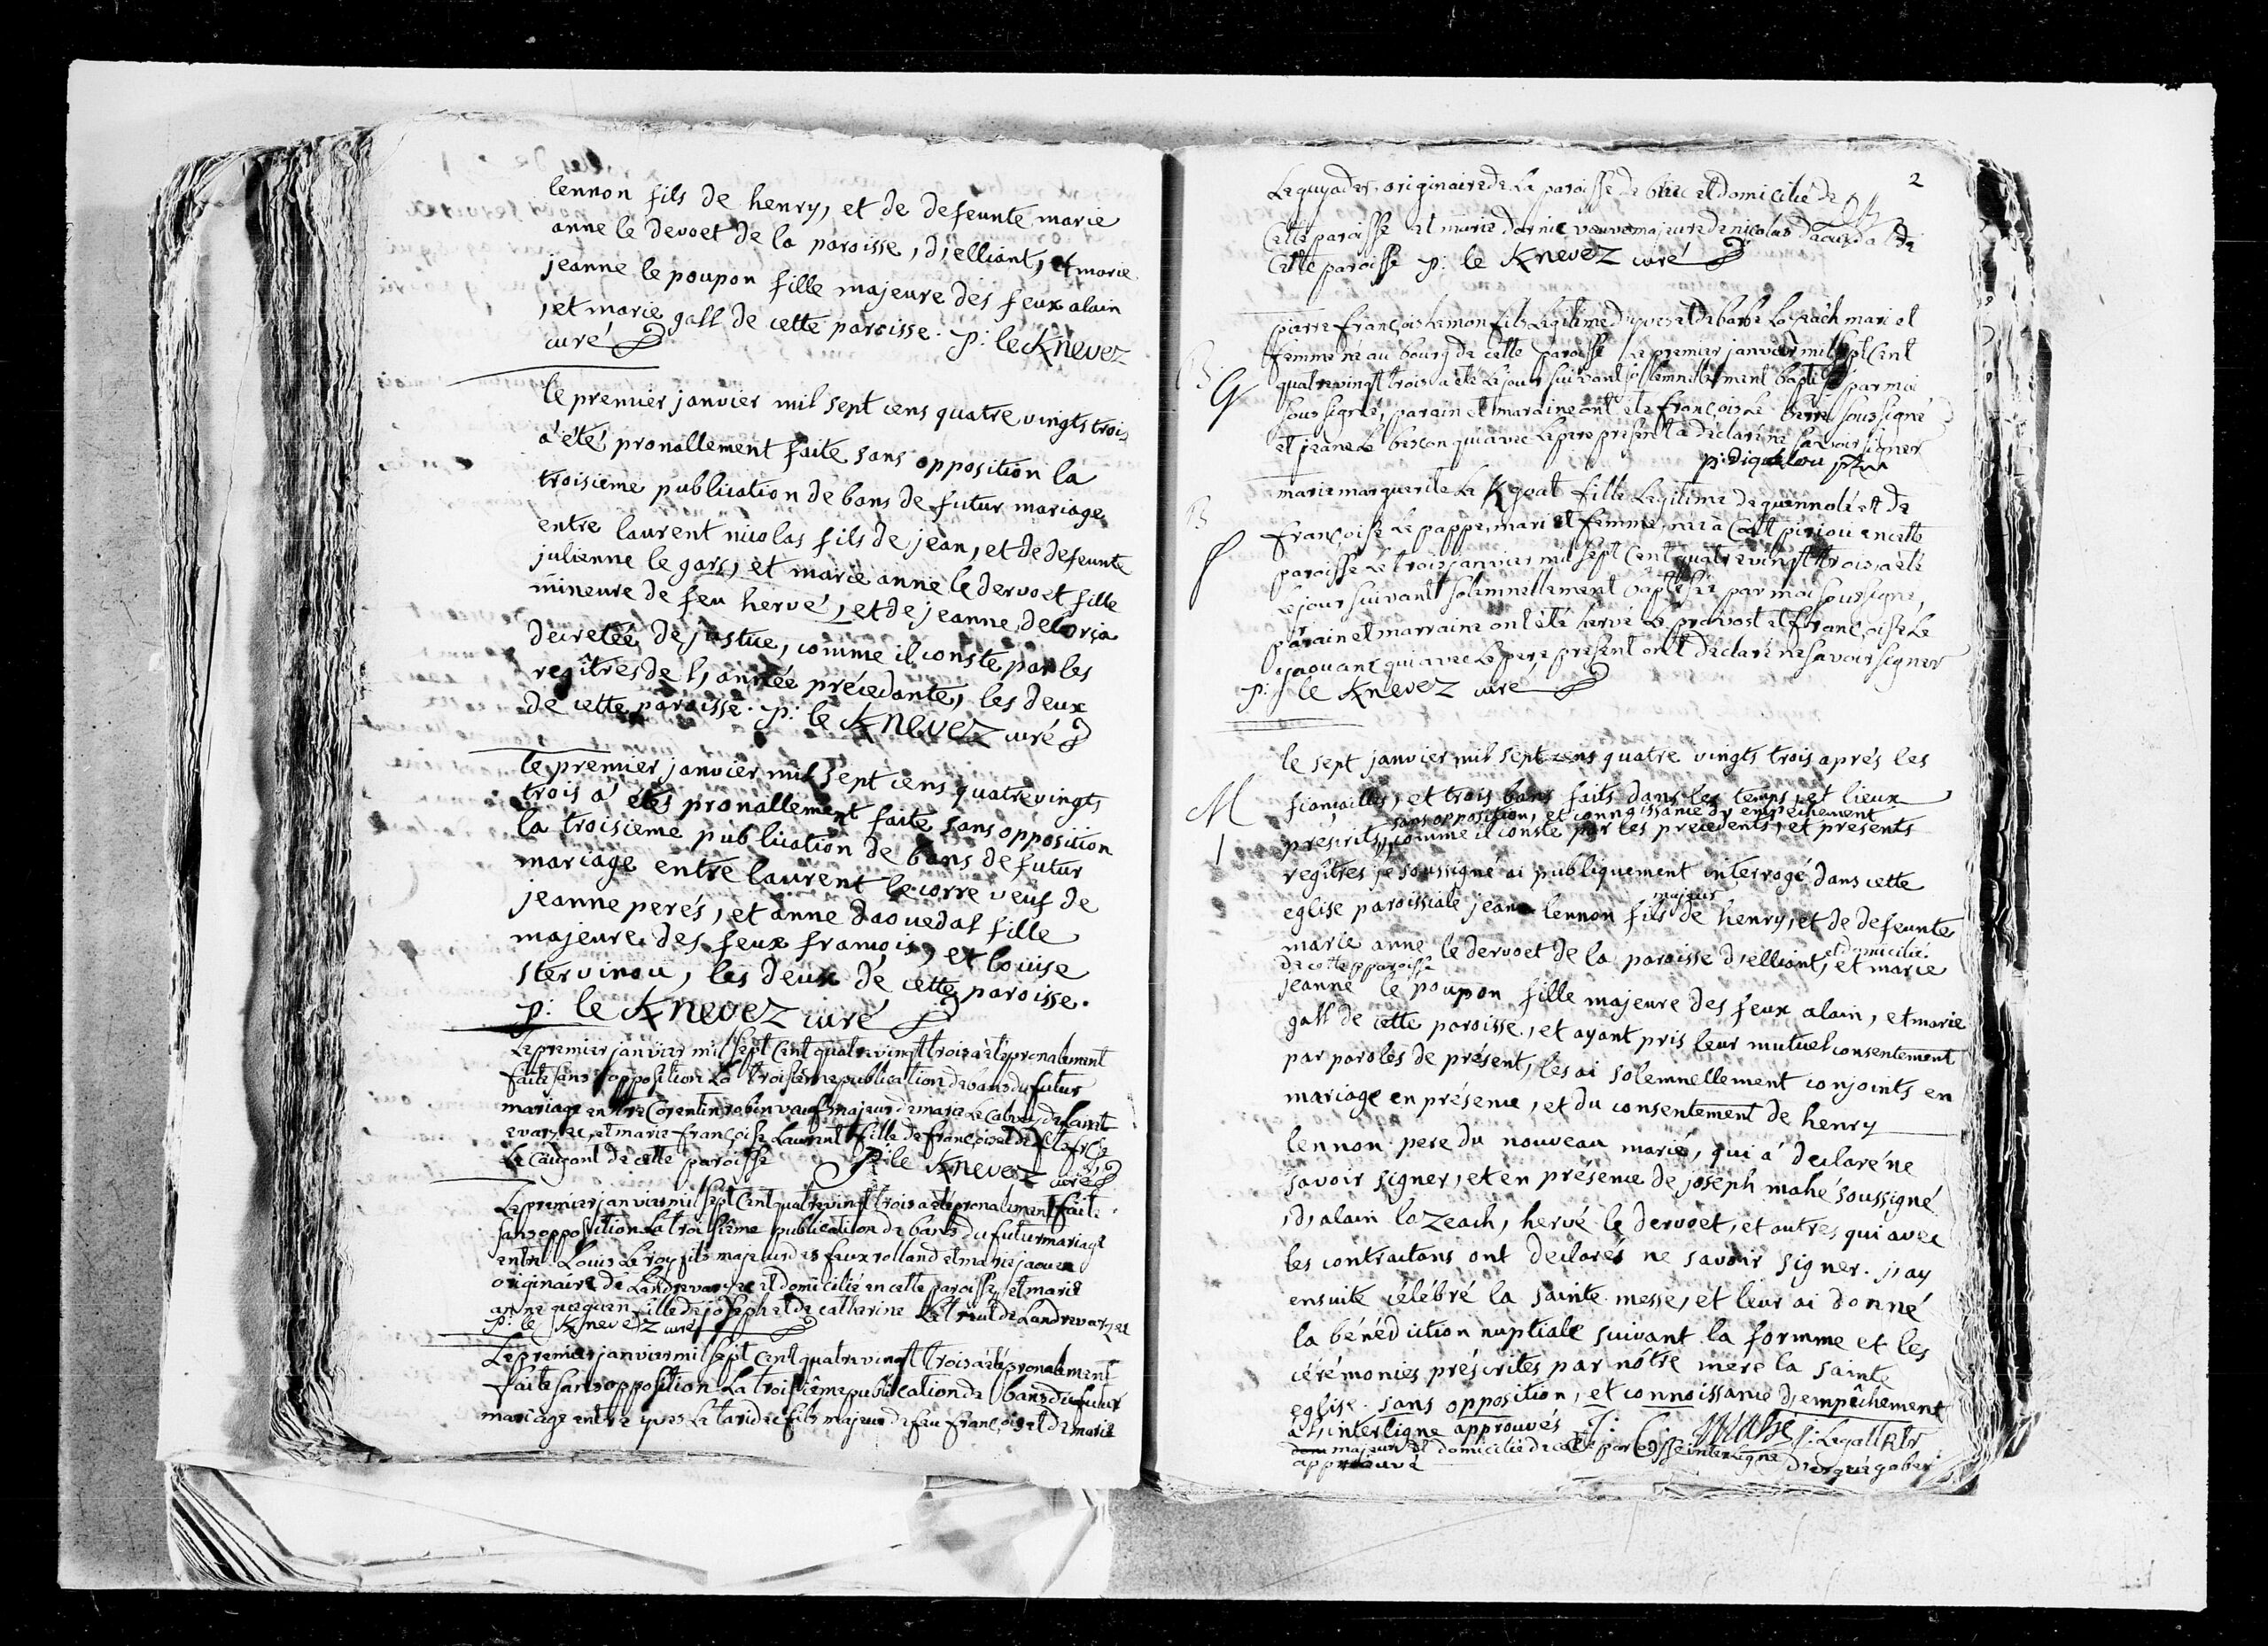 lennon fils de henry, et de defeunte marie
anne le devoet de la paroisse, d'elliant, et marie
jeanne le poupon fille majeure des feux alain
, et marie gall de cette paroisse. p: le Knevez
curé
le premier janvier mil sept cens quatre vingts trois
a été pronallement faite sans opposition la
troisieme publication de bans de futur mariage
entre laurent nicolas fils de jean, et de defeunte
julienne le gars, et marie anne le dervoet fille
mineure de feu hervé, et de jeanne
decretée de justice, comme il conste par les
regîtres de l'année précedante, les deux
de cette paroisse. p: le Knevez curé
le premier janvier mil sept cens quatre vingts
trois a étés pronallement faite sans opposition
la troisieme publication de bans de futur
mariage entre laurent le corre veuf de
jeanne perés, et anne daouedal fille
majeure des feux françois, et louise
stervinou, les deux de cette paroisse.
p: le Knevez curé
Le premier janvier mil sept Cent quatrevingt trois a été pronalement
faite sans opposition La troisième publication de bans du futur
mariage entre Corentin robin veuf majeur de marie Le Calvez de saint
evarzec, et marie françoise Laurent fille de françois et de
Le Caugant de cette paroisse p: le Knevez curé
Le premier janvier mil sept Cent quatrevingt trois a été pronalement faite
sans opposition La troisième publication de bans du futur mariage
entre Louis Le roy fils majeur des feux rolland et marie jaouen
originaire de Landrevarzec et domicilié en cette paroisse, et marie
anne queguen fille de joseph et de catherine de Landrevarzec
p: le Knevez curé
Le premier janvier mil sept Cent quatrevingt trois a été pronalement
faite sans opposition La troisième publication de bans du futur
mariage entre yves Le taridec fils majeur de feu françois et de marie
2
Le guyader, originaire de La paroisse de briec et domicilié de
Cette paroisse et marie darnic veuve majeure de nicolas daouedal de
Cette paroisse p: le Knevez curé
B
G
pierre françois hemon fils Legitime d'yves et de barbe Lozeach mari et
femme né au bourg de cette paroisse Le premier janvier mil sept Cent
quatrevingt trois a été Le jour suivant solemnellement baptisé par moi
sous signé, parain et maraine ont été françois Le Berre soussigné
et jeane Le bescon qui avec Le pere present a déclaré ne savoir signer
p: diquelou ptre
B
f
marie marguerite Le Kgoat fille Legitime de guennolé et de
françoise Le pappe, mari et femme, née à Coat piriou en cette
paroisse Le trois janvier mil sept Cent quatrevingt trois, a été
Le jour suivant solemnellement baptisée par moi soussigné,
parain et marraine ont été hervé Le provost et françoise Le
yaouanc qui avec Le pere present ont déclaré ne savoir signer
p: le Knevez curé
M
1
le sept janvier mil sept cens quatre vingts trois aprés les
fiancailles, et trois bans faits dans les temps, et lieux
sans opposition, et connaissance d'empêchement
préscrits, comme il conste par les precedents, et présents
regîtres je soussigné ai publiquement interrogé dans cette
majeur
eglise paroissiale jean lennon fils de henry, et de defeunte
marie anne le dervoet de la paroisse d'elliant, et marie
et domicilié
de cette paroisse
jeanne le poupon fille majeure des feux alain, et marie
gall de cette paroisse, et ayant pris leur mutuel consentement
par paroles de présent, les ai solemnellement conjoints en
mariage en présence, et du consentement de henry
lennon pere du nouveau marié, qui a declaré ne
savoir signer, et en présence de joseph mahé soussigné
,d'alain lozeach, hervé le dervoet, et autres qui avec
les contractans ont declarés ne savoir signer. j'ay
ensuite célébré la sainte messe, et leur ai donné
la bénédiction nuptiale suivant la formme et les
cérémonies préscrites par nôtre mere la sainte
eglise. sans opposition, et connoissance d'empêchement
interligne approuvés J: mahé j: Legall
majeur et domicilié de cette paroisse interligne
approuvé d'ergué gaberic